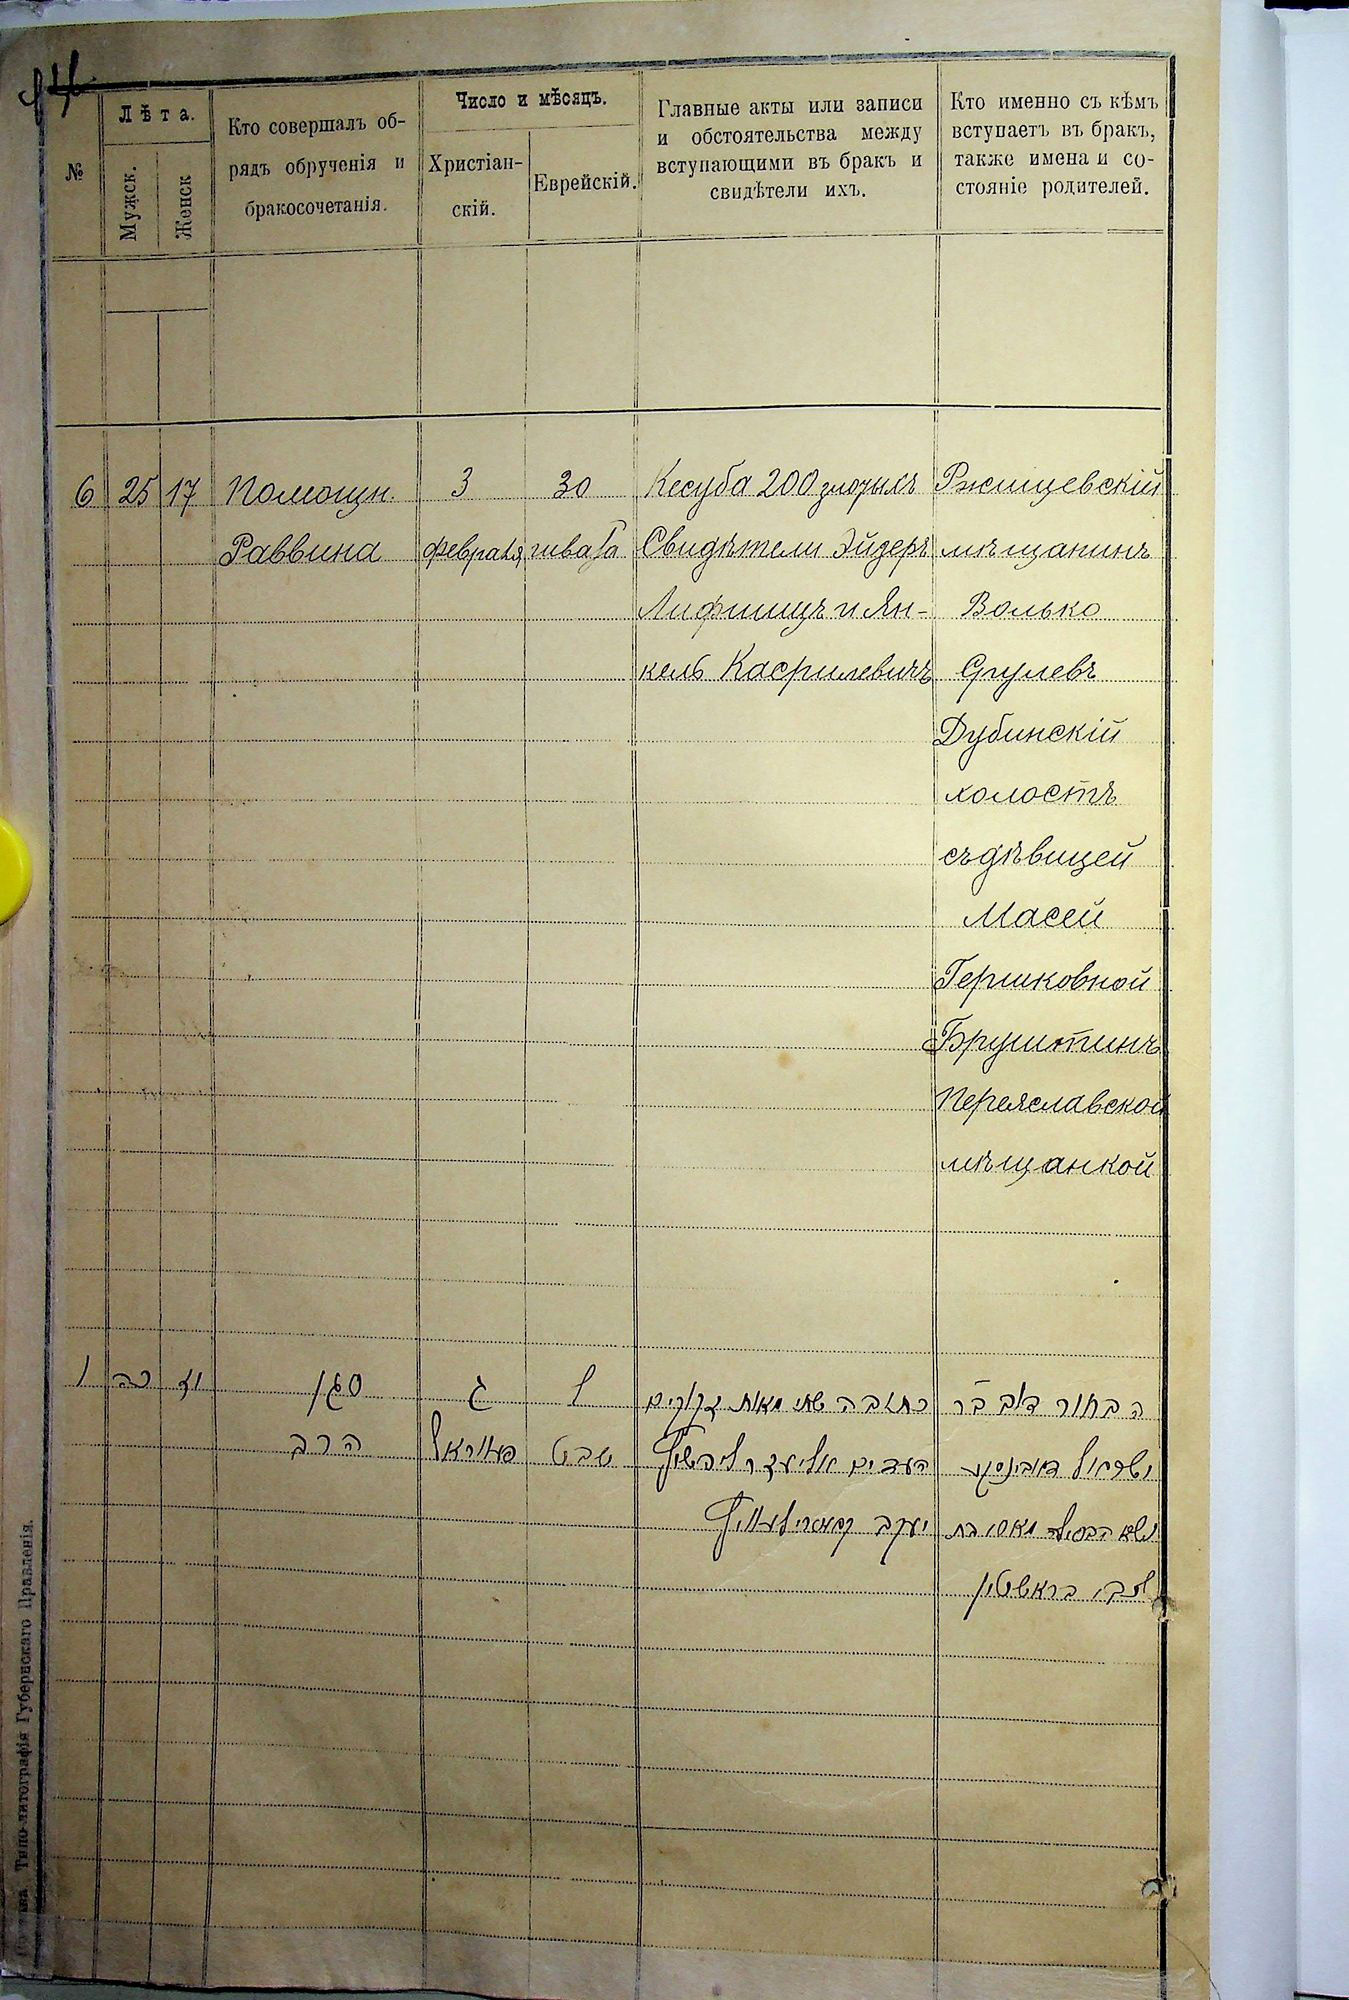 №
Лѣта.
Мужск.
Женск
Кто совершалъ об-
рядъ обрученія и
бракосочетанія.
Число и мѣсяцъ.
Христіан-
скій.
Еврейскій.
Главные акты или записи
и обстоятельства между
вступающими въ бракъ и
свидѣтели ихъ.
Кто именно съ кѣмъ
вступаетъ въ бракъ,
также имена и со-
стояніе родителей.
6 25 17 Помощн. 3 30 Кесуба 200 злотыхъ Ржищевскій
Раввина февраля шва Свидѣтели Эйдеръ мѣщанинъ
Лифшицъ и Ян- Волько
кель Касрилевичъ Срулевъ
Дубинскій
холостъ
съ дѣвицей
Масей
Гершковной
Бруштинъ
Переяславской
мѣщанкой
ו כה יז סגן ג ל כתובה שתי מאות זקוקים הבחור דוב בר
הרב פעוראל שבט העדים אליעזר ליפשיץ ישראל דובינסקי
יעקב קאסרילעוויץ נשא הבתולה מאסי בת
צבי בראשטין
Типо-литографія Губернскаго Правленія.